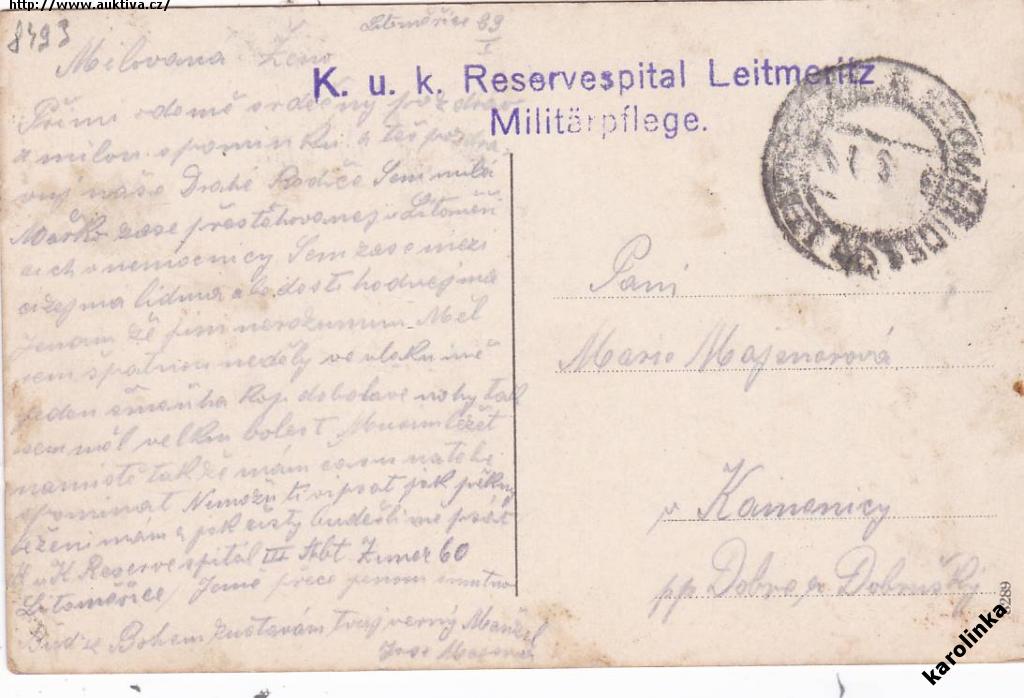 http://www.auktiva.cz/
8493
Litoměřice 29
I
Milovaná Ženo
K. u. k. Reservespital Leitmeritz
Militärpflege.
Přimi odemě srdečny pozdrav
z milou spomínku a též pozdra
naše Drahé Rodiče Sem milá
zase přestěhovanej v Litoměři
cich v nemocnicy Sem zase mezi
cizejma lidma ale dosti hodnejma
Jenom že jim nerozumim Měl
sem špatnou neděly ve vlaku mě
jeden do bolavé nohy tak
sem měl velkou bolest Musim ležet
na mistě tak že mám času na tebe
spominat Nemožu ti vipsat jak pěkny
ležení mám a jak psát
K u K Reservespital III Abt Zimer 60
Litoměřice Jsme přece jenom smutno
Buď z Bohem zustavam tvůj verny Manžel
Pani
Marie Majenerová
v Kamenicy
pp Dobre Dobrušky
8289
karolinka